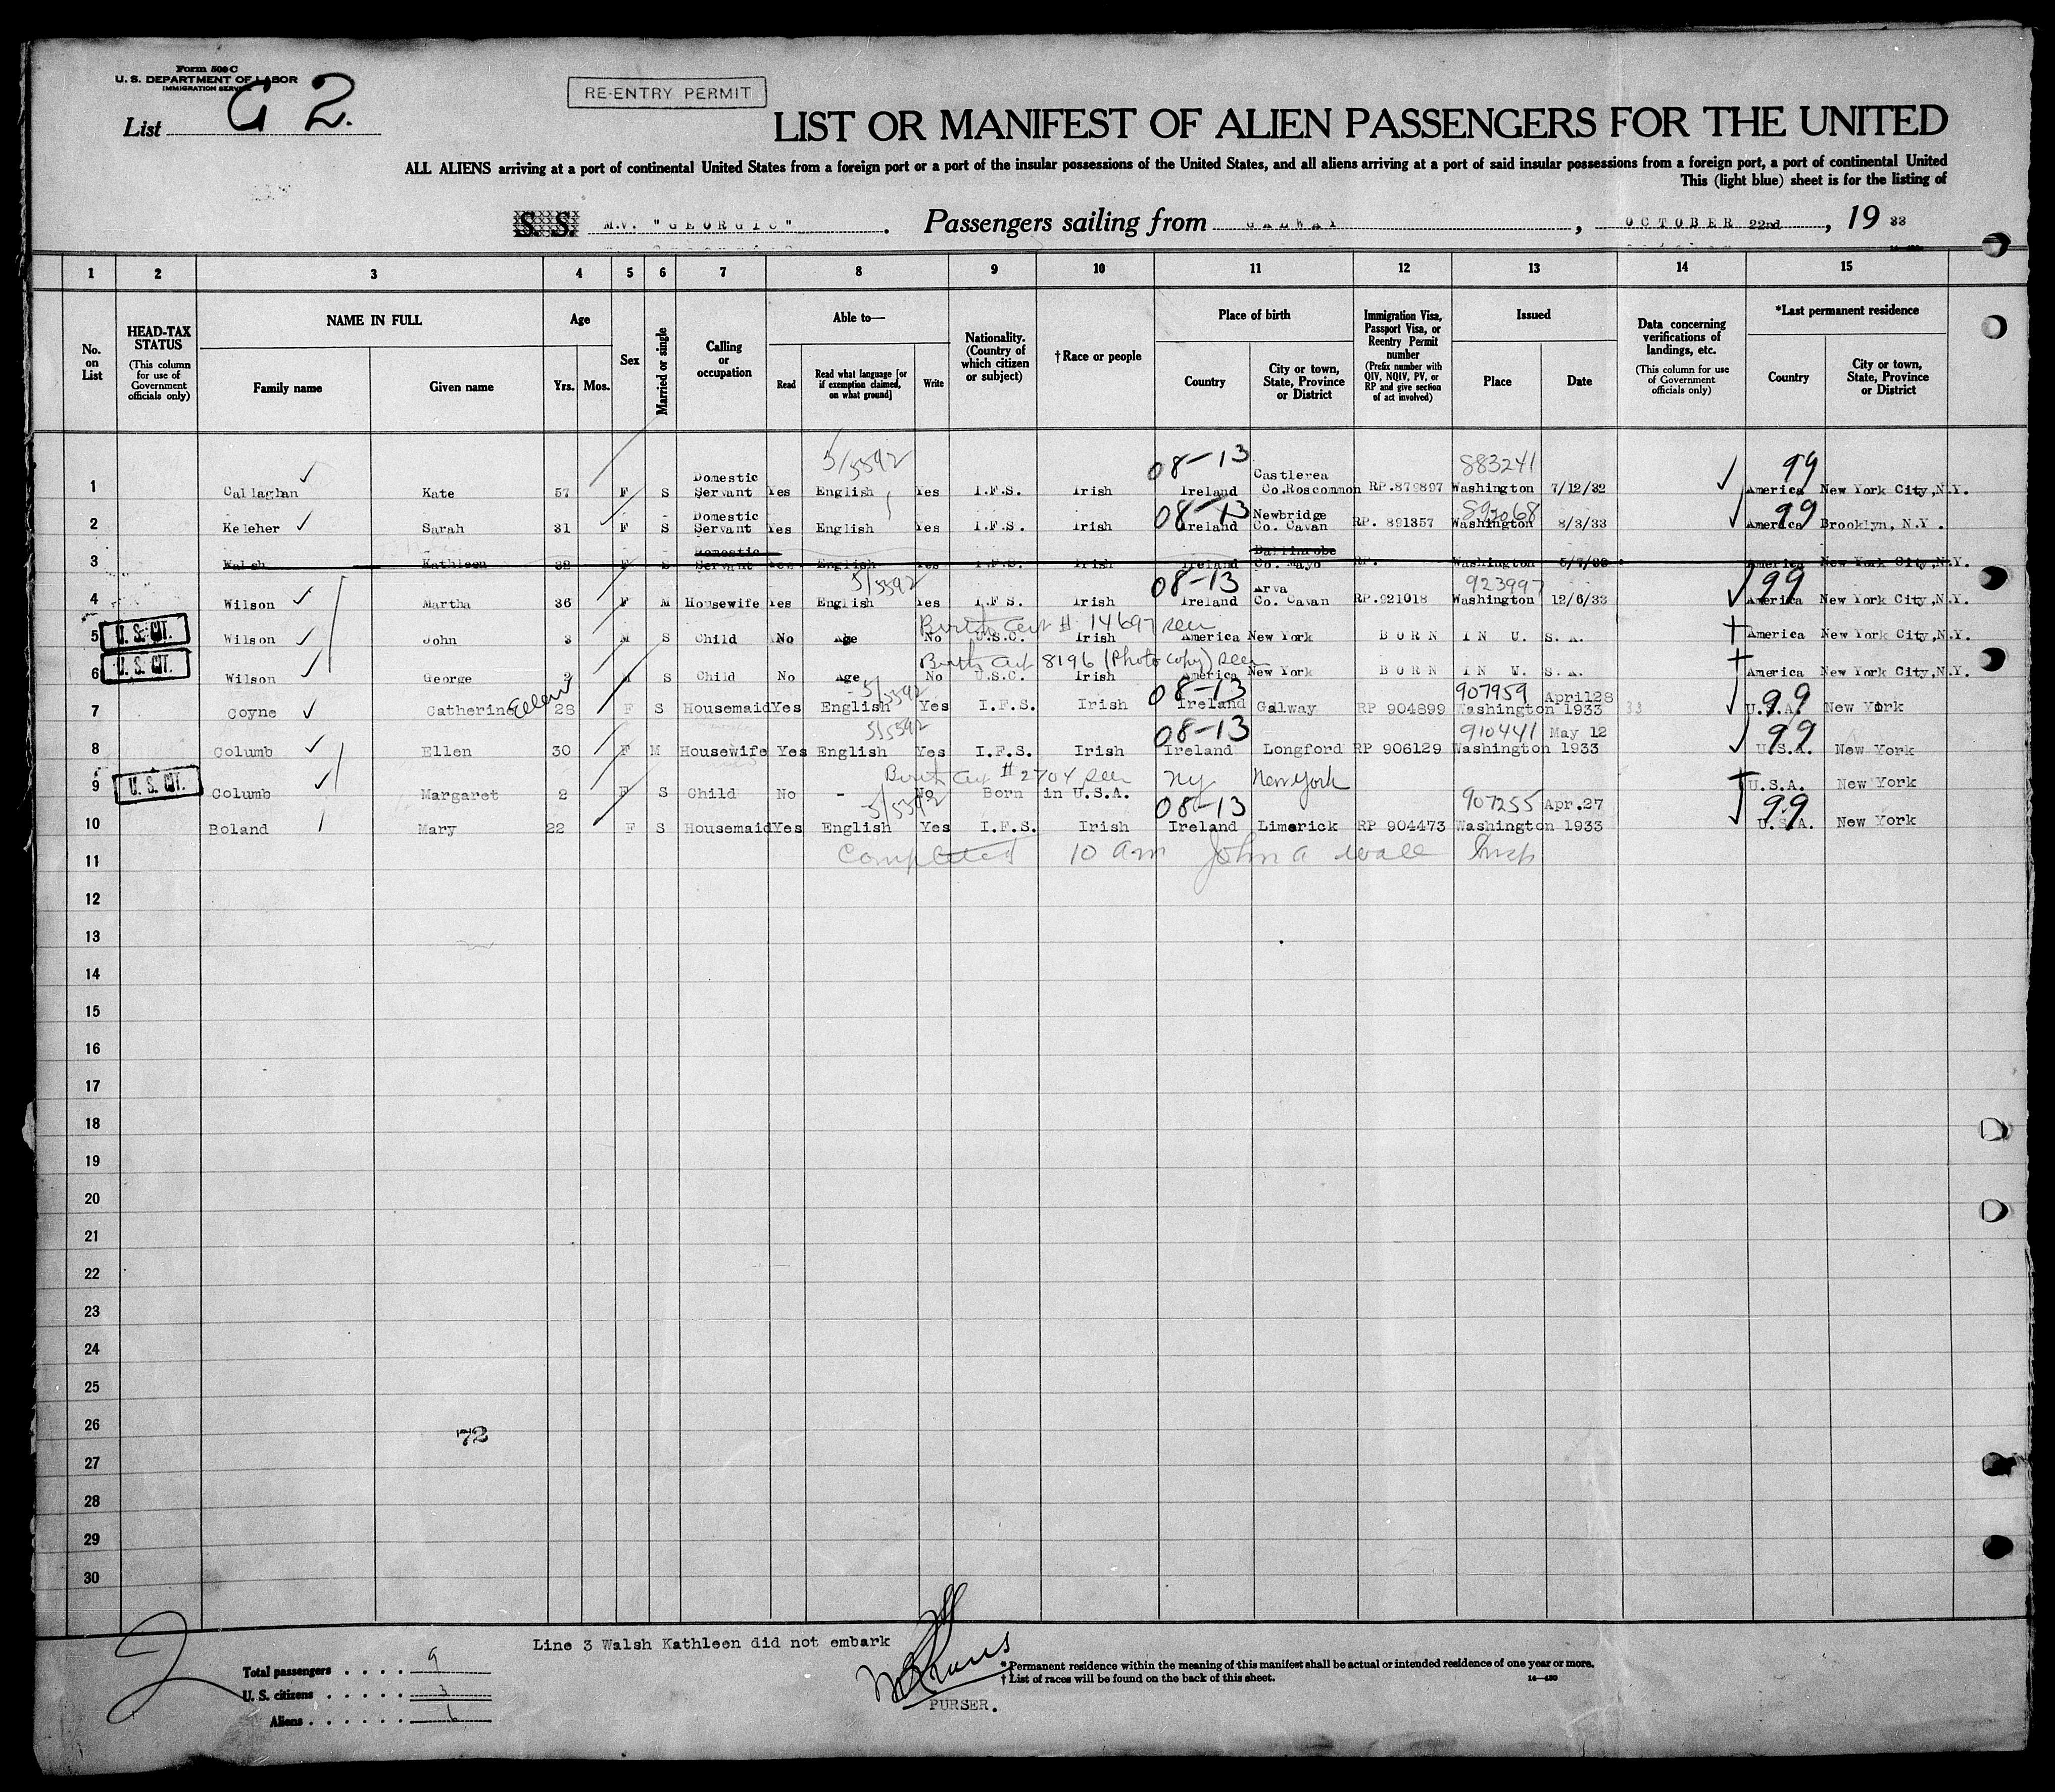 Form 500 C
U. S. DEPARTMENT OF LABOR
IMMIGRATION SERVICE
List G 2.
RE-ENTRY PERMIT
LIST OR MANIFEST OF ALIEN PASSENGERS FOR THE UNITED
ALL ALIENS arriving at a port of continental United States from a foreign port or a port of the insular possessions of the United States, and all aliens arriving at a port of said insular possessions from a foreign port, a port of continental United
This (light blue) sheet is for the listing of
S. S. M.V. "GEORGIC". Passengers sailing from GALWAY, OCTOBER 22nd, 19 33
1 2 3 4 5 6 7 8 9 10 11 12 13 14 15
No. on List
HEAD-TAX STATUS (This column for use of Government officials only)
NAME IN FULL
Family name Given name
Age
Yrs. Mos.
Sex
Married or single
Calling or occupation
Able to—
Read
Read what language [or if exemption claimed, on what ground]
Write
Nationality. (Country of which citizen or subject)
†Race or people
Place of birth
Country
City or town, State, Province or District
Immigration Visa, Passport Visa, or Reentry Permit number (Prefix number with QIV, NQIV, PV, or RP and give section of act involved)
Issued
Place Date
Data concerning verifications of landings, etc. (This column for use of Government officials only)
*Last permanent residence
Country
City or town, State, Province or District
5/5592 08-13 883241 99
1 Callaghan Kate 57 F S Domestic Servant Yes English Yes I.F.S. Irish Ireland Castlerea Co.Roscommon RP.879897 Washington 7/12/32 America New York City,N.Y.
08-13 892068 99
2 Keleher Sarah 31 F S Domestic Servant Yes English Yes I.F.S. Irish Ireland Newbridge Co. Cavan RP. 891357 Washington 8/3/33 America Brooklyn, N.Y.
3 Walsh Kathleen 32 F S Domestic Servant Yes English Yes I.F.S. Irish Ireland Ballinrobe Co. Mayo RP. Washington America New York City,N.Y.
5/5592 08-13 923997 99
4 Wilson Martha 36 F M Housewife Yes English Yes I.F.S. Irish Ireland Arva Co. Cavan RP.921018 Washington 12/6/33 America New York City,N.Y.
Birth Cert # 14697 seen
5 U. S. CIT. Wilson John 3 M S Child No Age No U.S.C. Irish America New York BORN IN U. S. A. America New York City,N.Y.
Birth Cert 8196 (Photo copy) seen
6 U. S. CIT. Wilson George 2 M S Child No Age No U.S.C. Irish America New York BORN IN U. S. A. America New York City,N.Y.
Ellen 5/5592 08-13 907959 99
7 Coyne Catherine 28 F S Housemaid Yes English Yes I.F.S. Irish Ireland Galway RP 904899 Washington April28 1933 33 U.S.A. New York
5/5592 08-13 910441 99
8 Columb Ellen 30 F M Housewife Yes English Yes I.F.S. Irish Ireland Longford RP 906129 Washington May 12 1933 U.S.A. New York
Birth Cert # 2704 seen NY New York
9 U. S. CIT. Columb Margaret 2 F S Child No - No Born in U.S.A. U.S.A. New York
5/5592 08-13 907255 99
10 Boland Mary 22 F S Housemaid Yes English Yes I.F.S. Irish Ireland Limerick RP 904473 Washington Apr.27 1933 U.S.A. New York
11 Completed 10 am John A Wall Insp
12
13
14
15
16
17
18
19
20
21
22
23
24
25
26
72
27
28
29
30
2
Line 3 Walsh Kathleen did not embark
Total passengers . . . . 9
U. S. citizens . . . . . 3
Aliens . . . . . . 6
PURSER.
*Permanent residence within the meaning of this manifest shall be actual or intended residence of one year or more.
†List of races will be found on the back of this sheet.